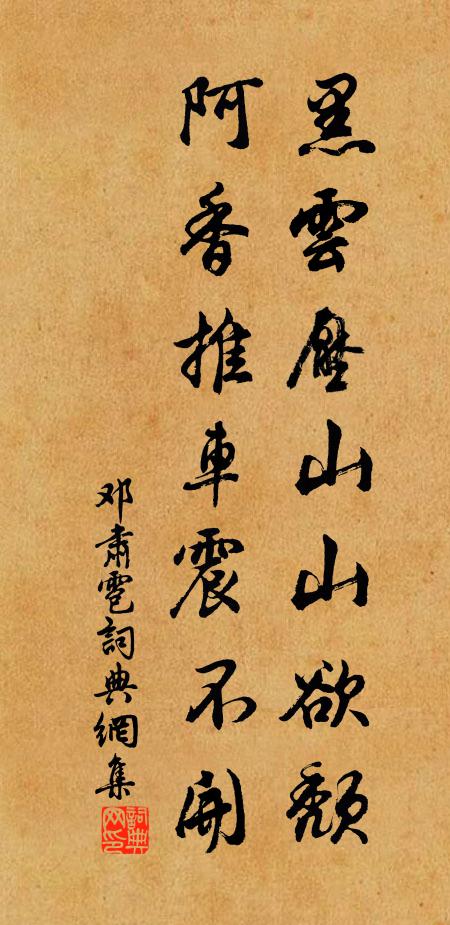 黑雲壓山山欲頹
阿香推車震不開
邓肅雹詞典網集
詞典網印